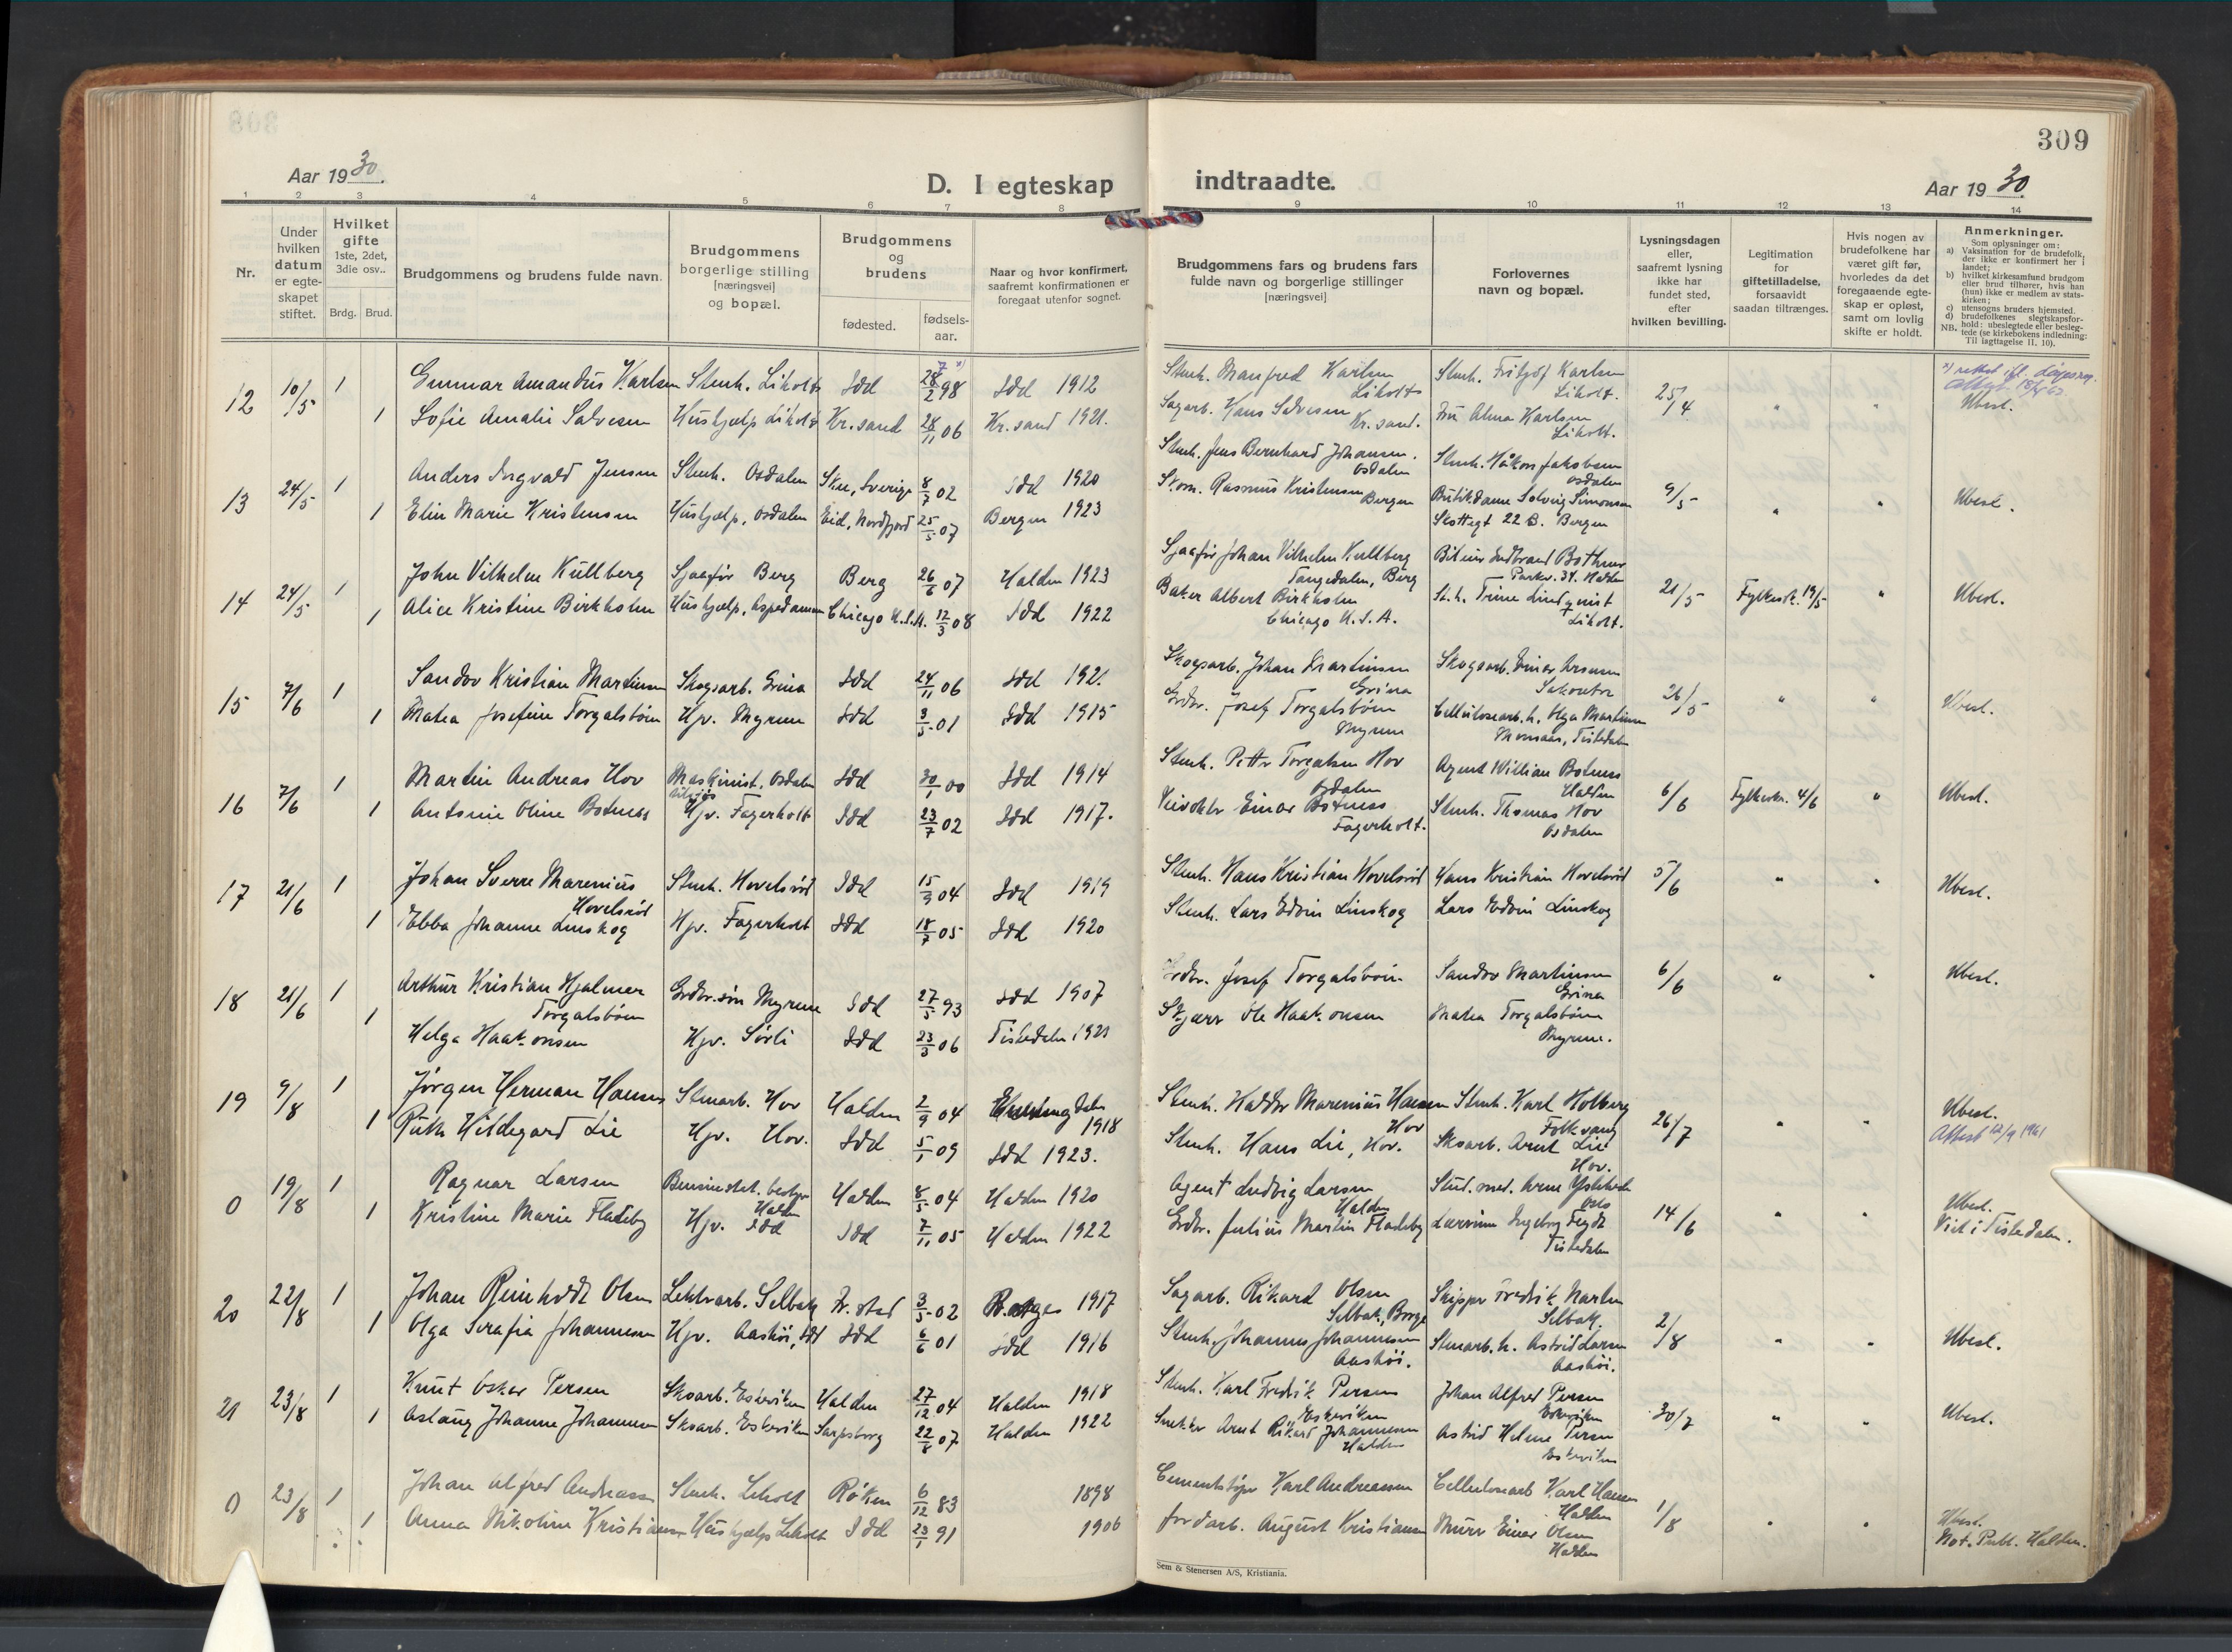 309
Aar 1930.
D. I egteskap
indtraadte.
Aar 1930.
1 2 3 4 5 6 7 8 9 10 11 12 13 14
Nr.
Under hvilken datum er egteskapet stiftet.
Hvilket gifte 1ste, 2det, 3die osv..
Brdg. Brud.
Brudgommens og brudens fulde navn.
Brudgommens borgerlige stilling [næringsvei] og bopæl.
Brudgommens og brudens
fødested.
fødsels-aar.
Naar og hvor konfirmert, saafremt konfirmationen er foregaat utenfor sognet.
Brudgommens fars og brudens fars fulde navn og borgerlige stillinger [næringsvei]
Forlovernes navn og bopæl.
Lysningsdagen eller, saafremt lysning ikke har fundet sted, efter hvilken bevilling.
Legitimation for giftetilladelse, forsaavidt saadan tiltrænges.
Hvis nogen av brudefolkene har været gift før, hvorledes da det foregaaende egteskap er opløst, samt om lovlig skifte er holdt.
Anmerkninger.
Som oplysninger om:
a) Vaksination for de brudefolk, der ikke er konfirmert her i landet;
b) hvilket kirkesamfund brudgom eller brud tilhører, hvis han (hun) ikke er medlem av statskirken;
c) utensogns bruders hjemsted.
d) brudefolkenes slegtskapsforhold: ubeslegtede eller beslegtede (se kirkebokens indledning: NB. Til iagttagelse II, 10).
12 10/5 1 Gunnar Amandus Karlsen Stenh. Liholt Idd 28/2 98 Idd 1912 Stenh. Manfred Karlsen Liholt Stenh. Fritjof Karlsen Liholt. 25/4 " " Ubesl.
1 Sofie Amalie Salvesen Hushjælp Liholt Kr.sand 28/11 06 Kr.sand 1921. Sagarb. Hans Salvesen Kr.sand. Fru Alma Karlsen Liholt.
13 24/5 1 Anders Ingvald Jensen Stenh. Osdalen Skee, Sverige 8/3 02 Idd 1920 Stenh. Jens Bernhard Johansen. Osdalen Stenh. Håkon Jakobsen Osdalen 9/5 " " Ubesl.
1 Elin Marie Kristensen Hushjælp, Osdalen Eid, Nordfjord 25/5 07 Bergen 1923 Skom. Rasmus Kristensen Bergen Butikdame Solveig Simonsen Skottegt 22 B. Bergen
14 24/5 1 John Vilhelm Kullberg Sjaafør Berg Berg 26/6 07 Halden 1923 Sjaafør Johan Vilhelm Kullberg Tangedalen, Berg Parkv. 34. Halden 21/5 Fylkesk. 19/5 " Ubesl.
1 Alice Kristine Birkholm Hushjælp, Aspedammen Chicago U.S.A. 12/3 08 Idd 1922 Baker Albert Birkholm Chicago U.S.A. St.h. Trine Lindqvist Liholt.
15 7/6 1 Sandor Kristian Martinsen Skogsarb. Grina Idd 24/11 06 Idd 1921. Skogsarb. Johan Martinsen Grina Skogsarb. Einar 26/5 " " Ubesl.
1 Matea Josefine Torgalsbøen Hjv. Myrene Idd 3/5 01 Idd 1915 Grdbr. Josef Torgalsbøen Myrene Cellulosearb. h. Olga Martinsen Tistedalen
16 7/6 1 Martin Andreas Hov Maskinist, Osdalen Idd 30/1 00 Idd 1914 Stenh. Petter Torgalsen Hov Osdalen Agent William Botness Halden 6/6 Fylkesk. 4/6 " Ubesl.
1 Antonie Oline Botness Hjv. Fagerholt Idd 23/7 02 Idd 1917. Veivokter Einar Botness Fagerholt. Stenh. Thomas Hov Osdalen
17 21/6 1 Johan Sverre Marenius Hovelsrød Stenh. Hovelsrød Idd 15/9 04 Idd 1919 Stenh. Hans Kristian Hovelsrød Hans Kristian Hovelsrød 5/6 " " Ubesl.
1 Ebba Johanne Linskog Hjv. Fagerholt Idd 18/7 05 Idd 1920 Stenh. Lars Edvin Linskog Lars Edvin Linskog
18 21/6 1 Arthur Kristian Hjalmar Torgalsbøen Grdbr.søn Myrene Idd 27/5 93 Idd 1907 Grdbr. Josef Torgalsbøen Sandor Martinsen Grina 6/6 " " Ubesl.
1 Helga Haakonsen Hjv. Sørli Idd 23/3 06 Tistedalen 1921 Skjærr Ole Haakonsen Matea Torgalsbøen Myrene.
19 9/8 1 Jørgen Herman Hansen Stenarb. Hov Halden 2/9 04 1918 Stenh. Halder Marenius Hansen Hov Stenh. Karl Holberg Folkvang 26/7 " " Ubesl.
1 Ruth Hildegard Lie Hjv. Hov. Idd 5/1 09 Idd 1923. Stenh. Hans Lie, Hov. Skoarb. Arnt Lie Hov. Attest 12/9 1961
0 19/8 1 Ragnar Larsen Bensinstat. bestyr Halden Halden 8/5 04 Halden 1920 Agent Ludvig Larsen Halden Stud. med. Arne Oslo 14/6 " " Ubesl.
1 Kristine Marie Fladeby Hjv. Idd Idd 7/11 05 Halden 1922 Grdbr. Julius Martin Fladeby Lærerinne Ingeborg Tistedalen Viet i Tistedalen.
20 22/8 1 Johan Reinholdt Olsen Lekterarb. Selbak Fr.stad 3/5 02 Borge 1917 Sagarb. Rikard Olsen Selbak, Borge Skipper Fredrik Karlsen Selbak. 2/8 " " Ubesl.
1 Olga Serafia Johannesen Hjv. Aashøi, Idd Idd 6/6 01 Idd 1916 Stenh. Johannes Johannesen Aashøi. Stenarb. h. Astrid Larsen Aashøi.
21 23/8 1 Knut Oskar Persen Skoarb. Eskeviken Halden 27/12 04 Halden 1918 Stenh. Karl Fredrik Persen Eskeviken Johan Alfred Persen Eskeviken 30/7 " " Ubesl.
1 Aslaug Johanne Johannesen Skoarb. Eskeviken Sarpsborg 22/8 07 Halden 1922 Snekker Arnt Rikard Johannesen Halden Astrid Helene Persen Eskeviken
0 23/8 1 Johan Alfred Andreassen Stenh. Liholt Røken 6/12 83 1898 Cementstøper Karl Andreassen Cellulosearb Karl Hansen Halden 1/8 " " Ubesl.
1 Anna Nikoline Kristiansen Hushjælp Liholt Idd 23/1 91 1906 Jordarb. August Kristiansen Murer Einar Olsen Halden Not. Publ. Halden.
Sem & Stenersen A/S, Kristiania.